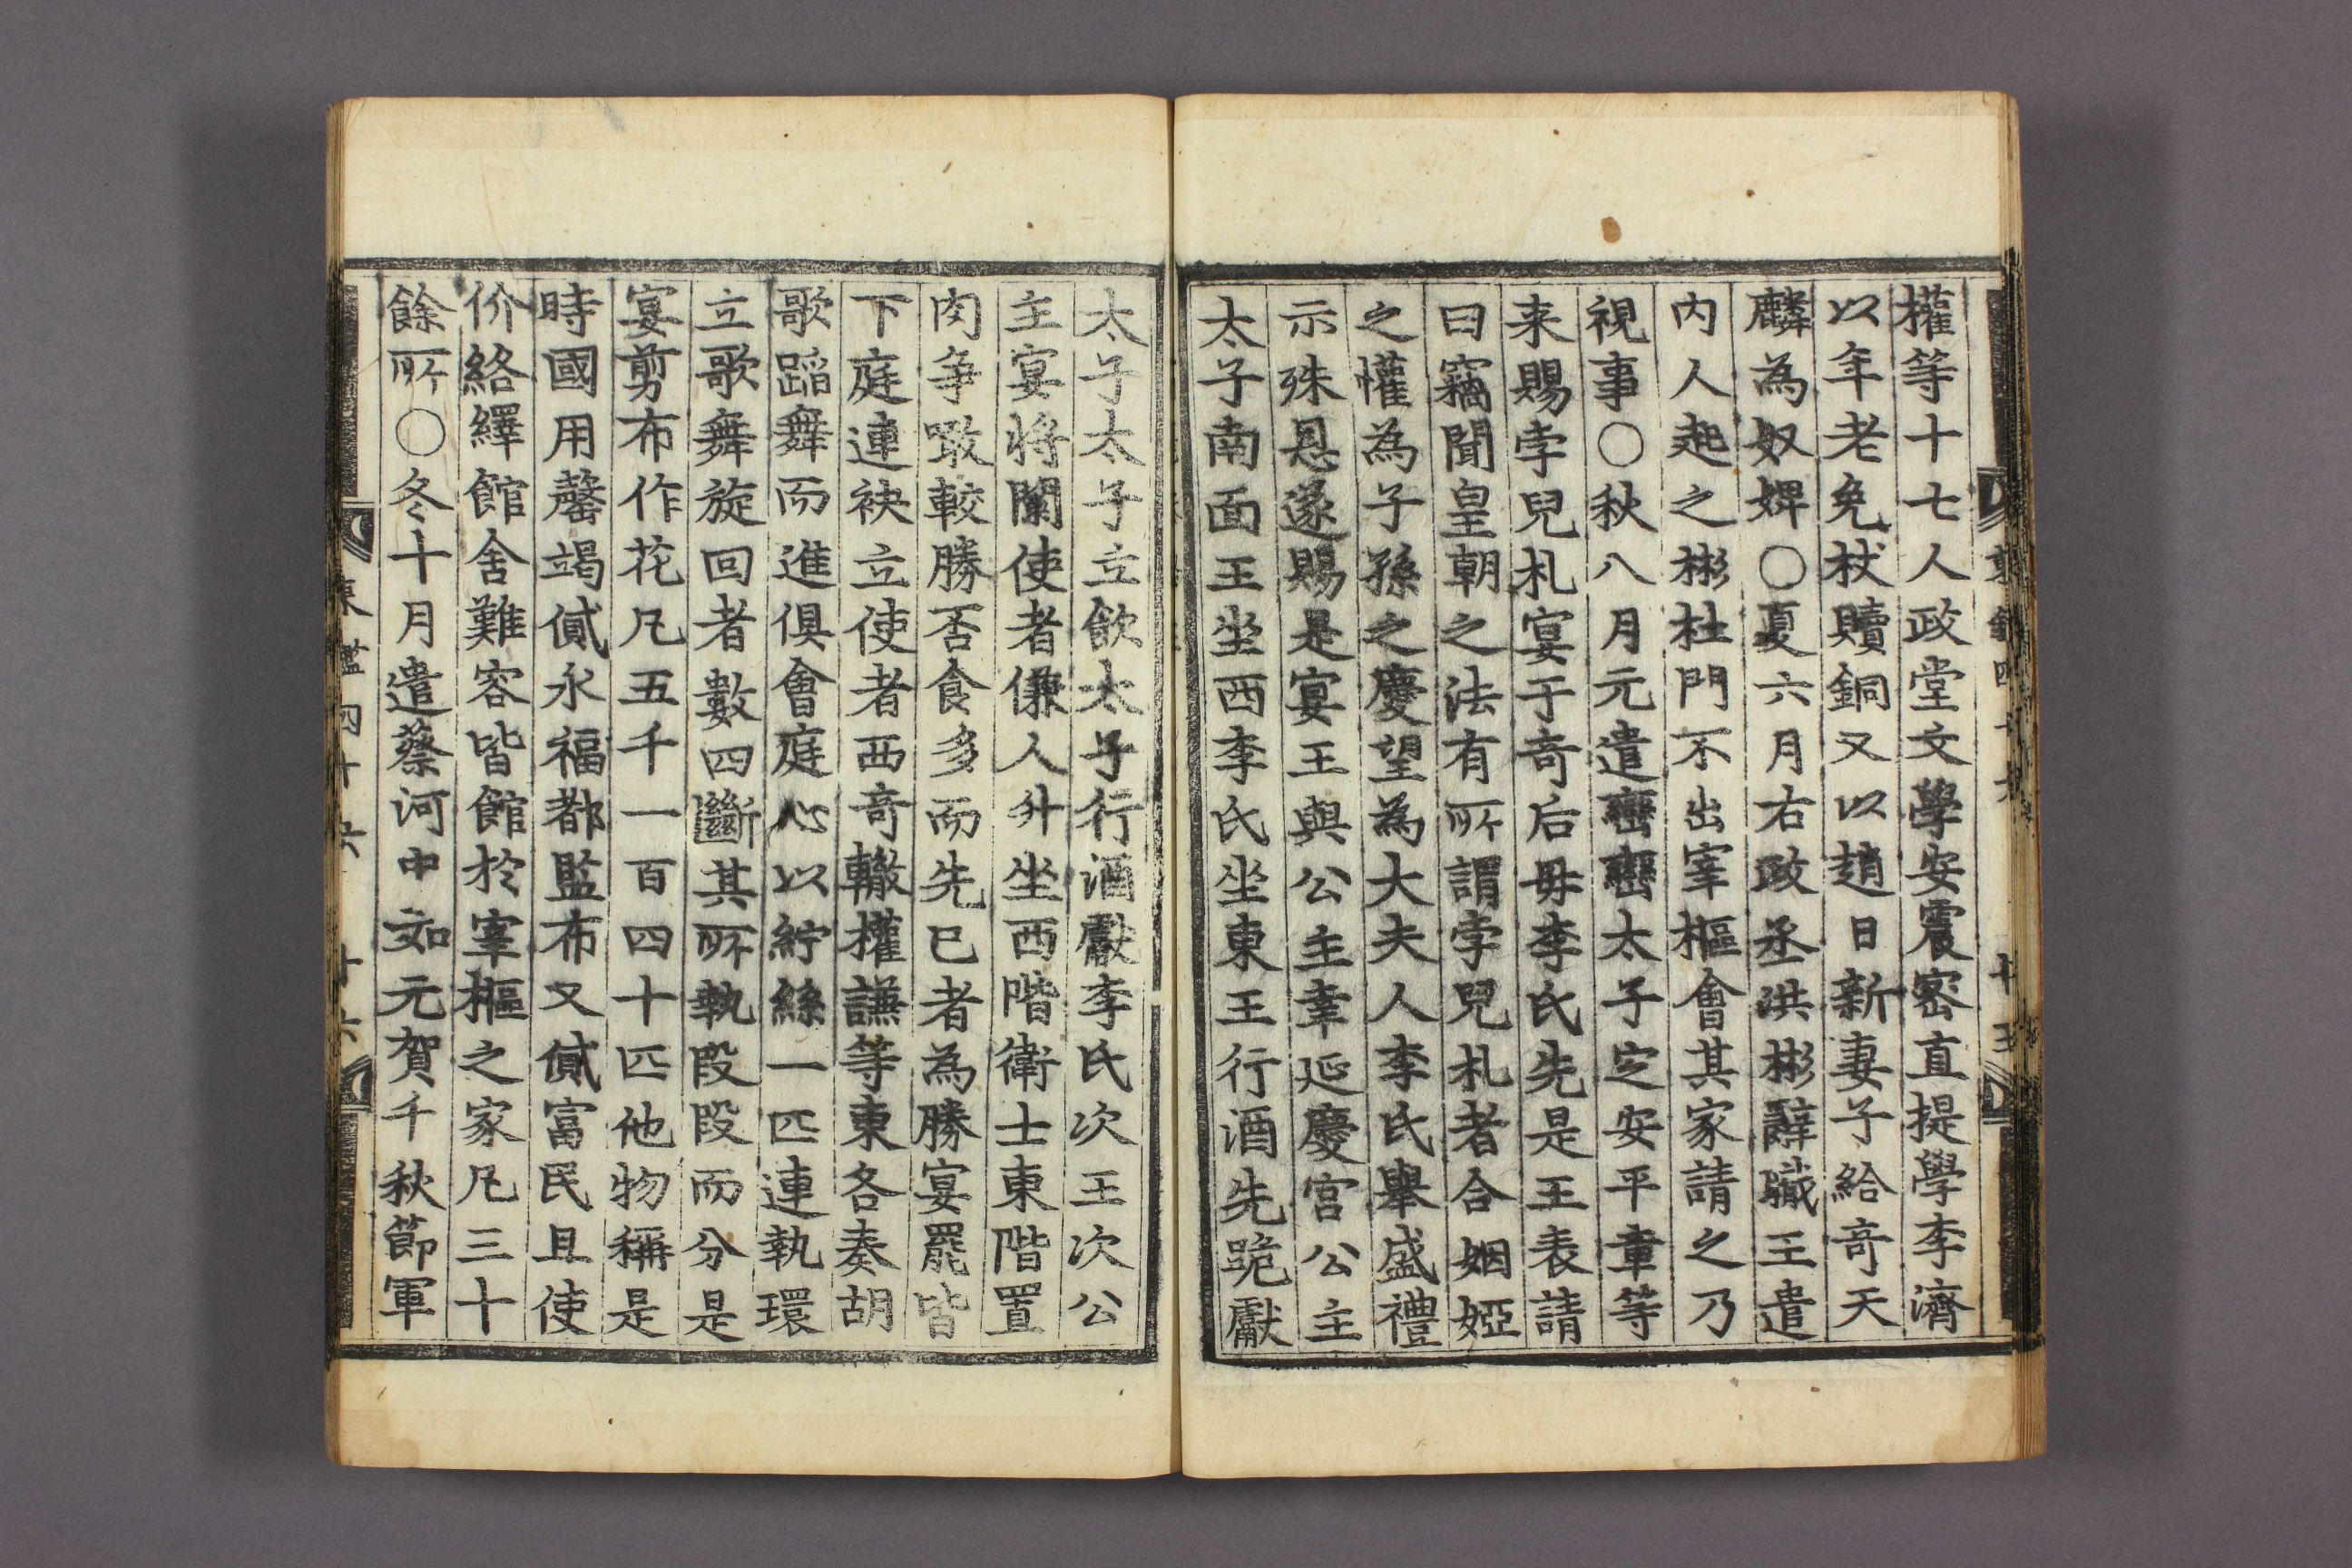 權等十七人政堂文學安震密直提學李濟
以年老免杖贖銅又以趙日新妻子給奇天
麟為奴婢○夏六月右政丞洪彬辭職王遣
内人起之彬杜門不出宰樞會其家請之乃
視事○秋八月元遣巒巒太子定安平章等
来賜孛兒札宴于奇后母李氏先是王表請
曰竊聞皇朝之法有所謂孛兒札者合姻婭
之懽為子孫之慶望為大夫人李氏舉盛禮
示殊恩遂賜是宴王與公主幸延慶宮公主
太子南面王坐西李氏坐東王行酒先跪獻
太子太子立飲太子行酒獻李氏次王次公
主宴將闌使者傔人升坐西階衛士東階置
肉爭噉較勝否食多而先已者為勝宴罷皆
下庭連袂立使者西奇轍權謙等東各奏胡
歌蹈舞而進俱會庭心以紵絲一匹連執環
立歌舞旋回者數四斷其所執段段而分是
宴剪布作花凡五千一百四十匹他物稱是
時國用罄竭貸永福都監布又貸富民且使
价絡繹館舍難容皆館於宰樞之家凡三十
餘所○冬十月遣蔡河中如元賀千秋節軍
東鑑四十六 十六